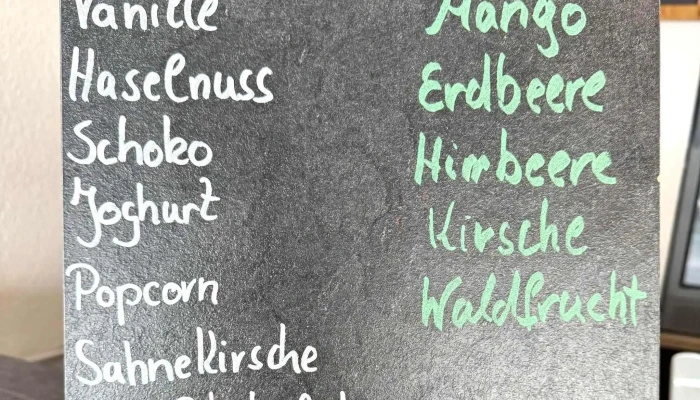 Vanille
Haselnuss
Schoko
Joghurt
Popcorn
Sahnekirsche
Mango
Erdbeere
Himbeere
Kirsche
Waldfrucht